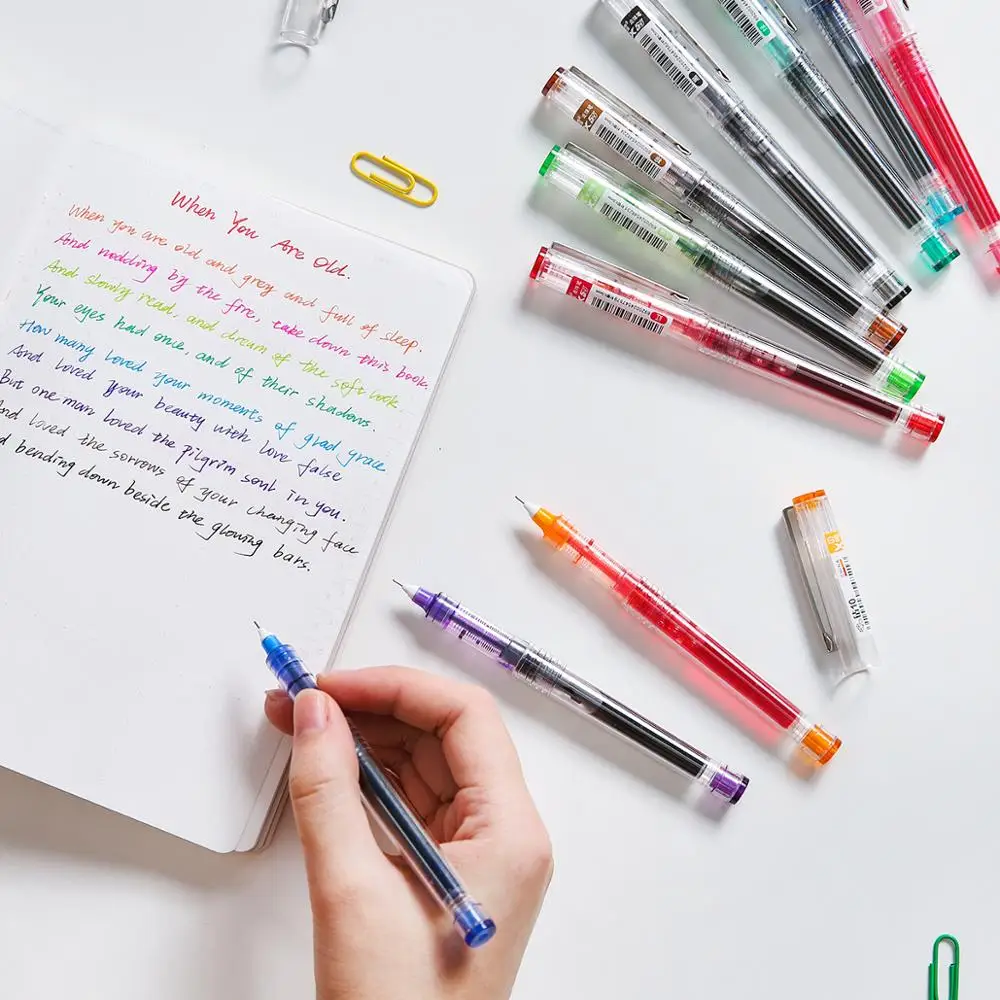 When You Are Old.
When you are old and grey and full of sleep.
And nodding by the fire, take down this book.
And slowly read, and dream of the soft look
Your eyes had once, and of their shadows.
How many loved your moments of grad grace
And loved your beauty with love false
But one man loved the pilgrim soul in you.
And loved the sorrows of your changing face
d bending down beside the glowing bars.